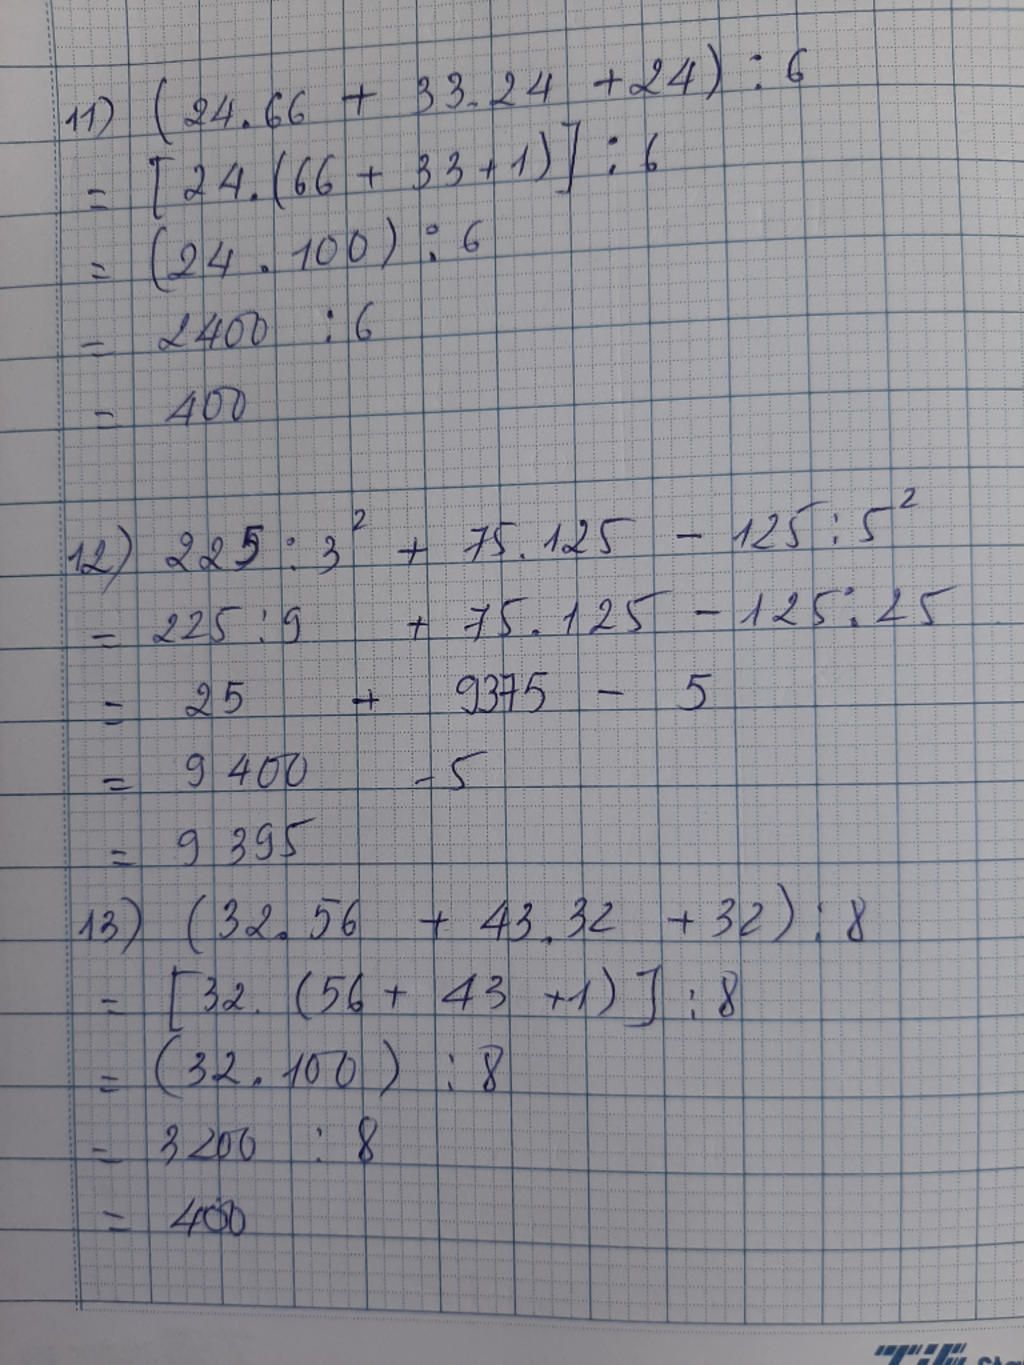 11) (24.66 + 33.24 + 24) : 6
= [24.(66 + 33 + 1)] : 6
= (24 . 100) : 6
= 2400 : 6
= 400
12) 225 : 3² + 75.125 - 125 : 5²
= 225 : 9 + 75.125 - 125 : 25
= 25 + 9375 - 5
= 9400 - 5
= 9395
13) (32.56 + 43.32 + 32) : 8
= [32. (56 + 43 + 1)] : 8
= (32.100) : 8
= 3200 : 8
= 400